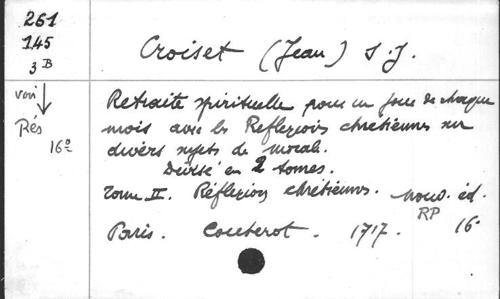 261
145
3 B
Croiset (Jean) S.J.
voir
Rés
16°
Retraite spirituelle pour un jour de chaque
mois avec les Reflexions chrétiennes sur
divers sujets de morale.
Divisé en 2 tomes.
Tome II. Réflexions chrétiennes. nouv. éd.
RP
Paris. Couterot. 1717. 16°